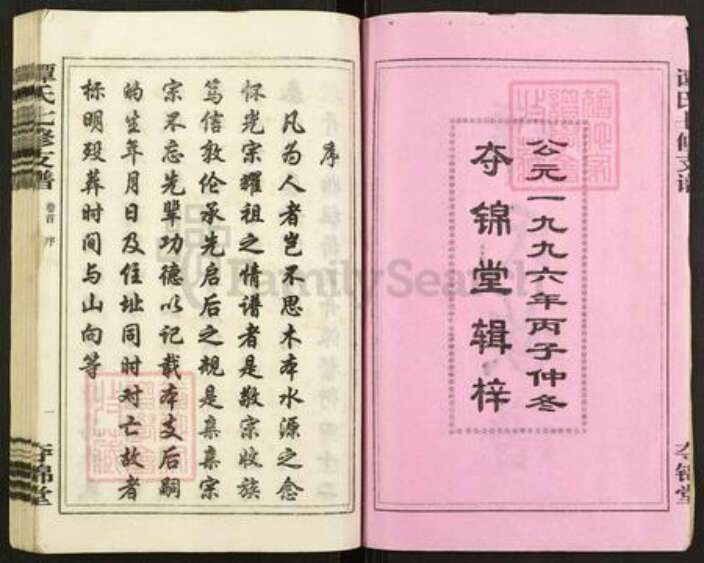 谭氏七修支谱
公元一九九六年丙子仲冬
夺锦堂辑梓
夺锦堂
序
凡为人者岂不思木本水源之念
怀光宗耀祖之情谱者是敬宗收族
笃信敦伦承先启后之规是亲亲宗
宗不忘先辈功德以记载本支后嗣
的生年月日及住址同时对亡故者
标明殁葬时间与山向等
谭氏七修支谱
卷首 序
一
夺锦堂
FamilySearch